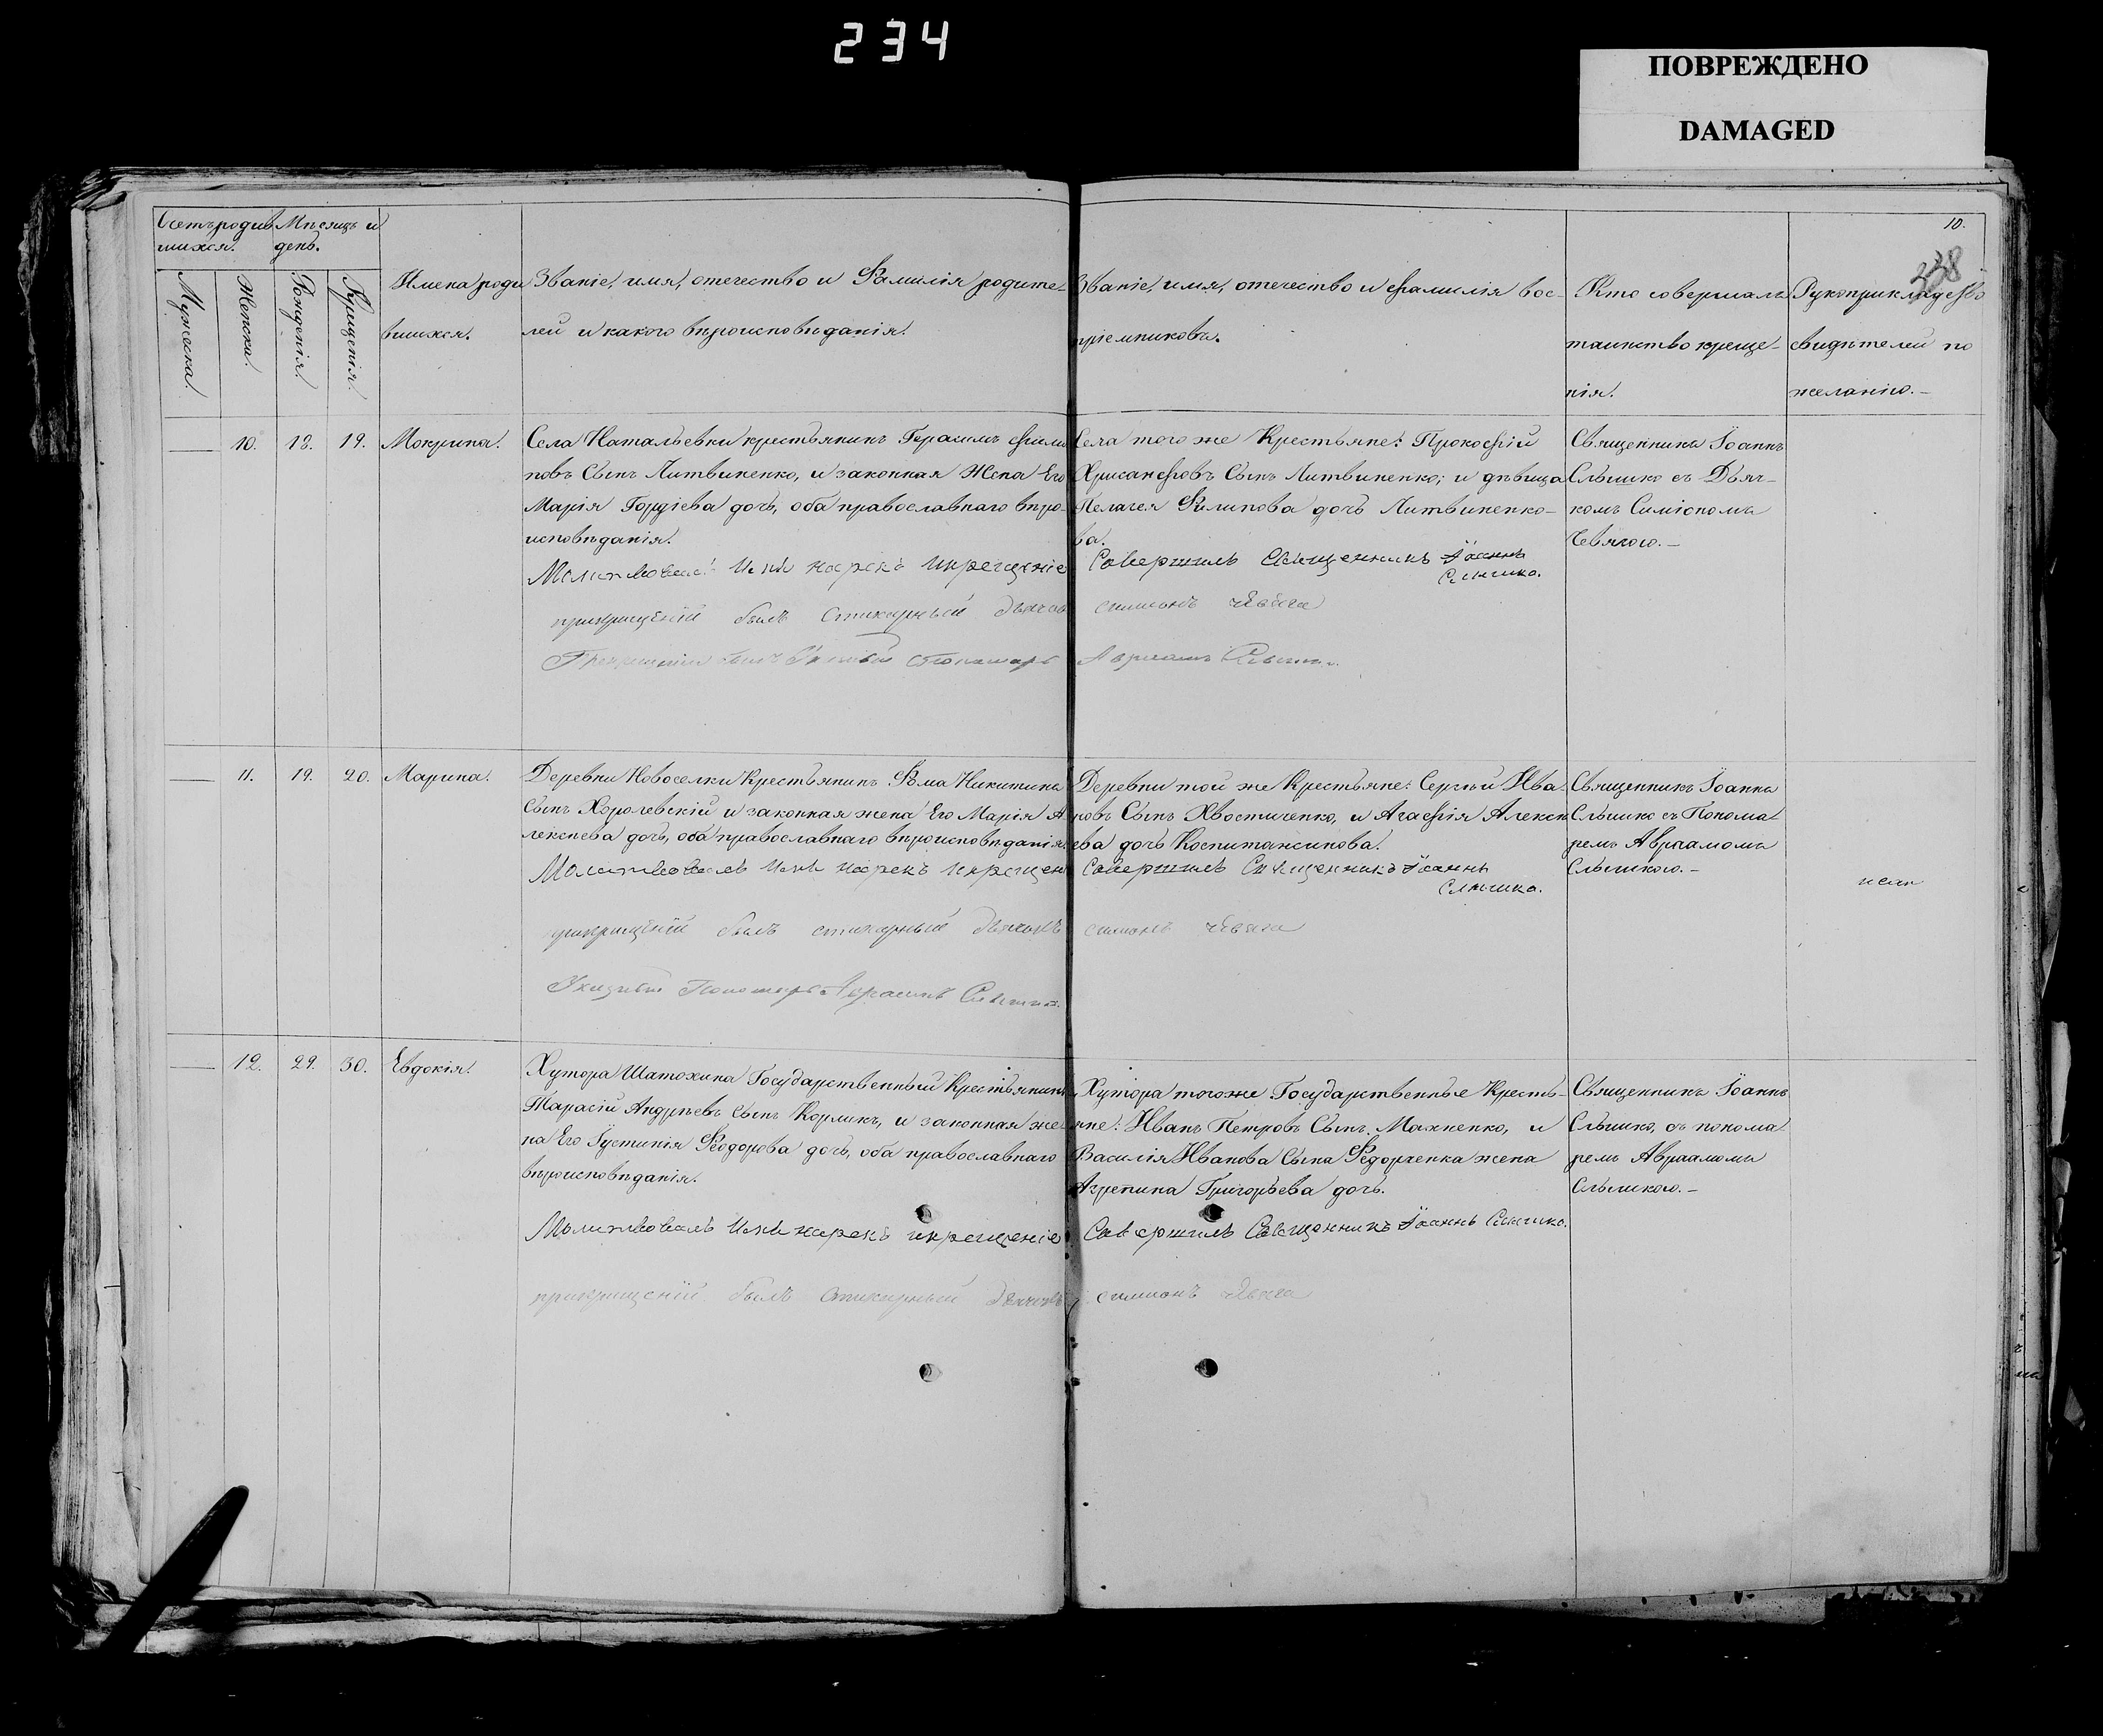 234
ПОВРЕЖДЕНО
DAMAGED
10.
238
Счетъ родив
шихся.
Мѣсяцъ и
день.
Мужеска.
Женска.
Рожденія
Крещенія.
Имена роди
вшихся.
Званіе, имя, отечество и Фамилія родите-
лей и какого вѣроисповѣданія.
Званіе, имя, отечество и фамилія вос-
пріемниковъ.
Кто совершалъ
таинство креще-
нія.
Рукоприкладство
свидѣтелей по
желанію.-
10. 18. 19. Мокрина.
Села Натальевки крестьянинъ Герасимъ Филип
повъ Сынъ Литвиненко, и законная Жена Его
Марія Гордіева дочь, оба православнаго вѣро-
исповѣданія.
Молитвовалъ Имя нарекъ икрещеніе
прикрещеніи былъ Стихарный дьячок
Села того же Крестьяне: Прокофій
Хрисанфовъ Сынъ Литвиненко; и дѣвица
Пелагея Филипова дочь Литвиненко-
ва.
Совершилъ Священникъ Іоаннъ
Слышко.
симионъ чевяга
Авраамъ
Священникъ Іоаннъ
Слышко съ Дьяч-
комъ Симіономъ
Чевягою.-
11. 19. 20. Марина.
Деревни Новоселки Крестьянинъ Фома Никитинъ
Сынъ Королевскій и законная жена Его Марія А
лексѣева дочь, оба православнаго вѣроисповѣданія.
Молитвовалъ Имя нарекъ икрещен
прикрещеніи былъ стихарный дьячокъ
Пономарь Авраамъ Слышко.
Деревни той же Крестьяне: Сергѣй Ива
новъ Сынъ Хвостиченко, и Агафія Алексѣ
ева дочь
Совершилъ Священникъ Іоаннъ
Слышко.
симионъ чевяга
Священникъ Іоаннъ
Слышко съ Понома
ремъ Авраамомъ
Слышкою.-
12. 29. 30. Евдокія.
Хутора Шатохина Государственный Крестьянинъ
Тарасій Андрѣевъ Сынъ Корликъ, и законная же
на Его Іустинія Феодорова дочь, оба православнаго
вѣроисповѣданія.
Молитвовалъ Имя нарекъ икрещеніе
прикрещеніи былъ Стихарный дьячокъ
Хутора того же Государственные Кресть-
яне: Иванъ Петровъ Сынъ Махненко, и
Василія Иванова Сына Федорченка жена
Агрепина Григорьева дочь.
Совершилъ Священникъ Іоаннъ Слышко.
симионъ чевяга
Священникъ Іоаннъ
Слышко, съ понома
ремъ Авраамомъ
Слышкою.-